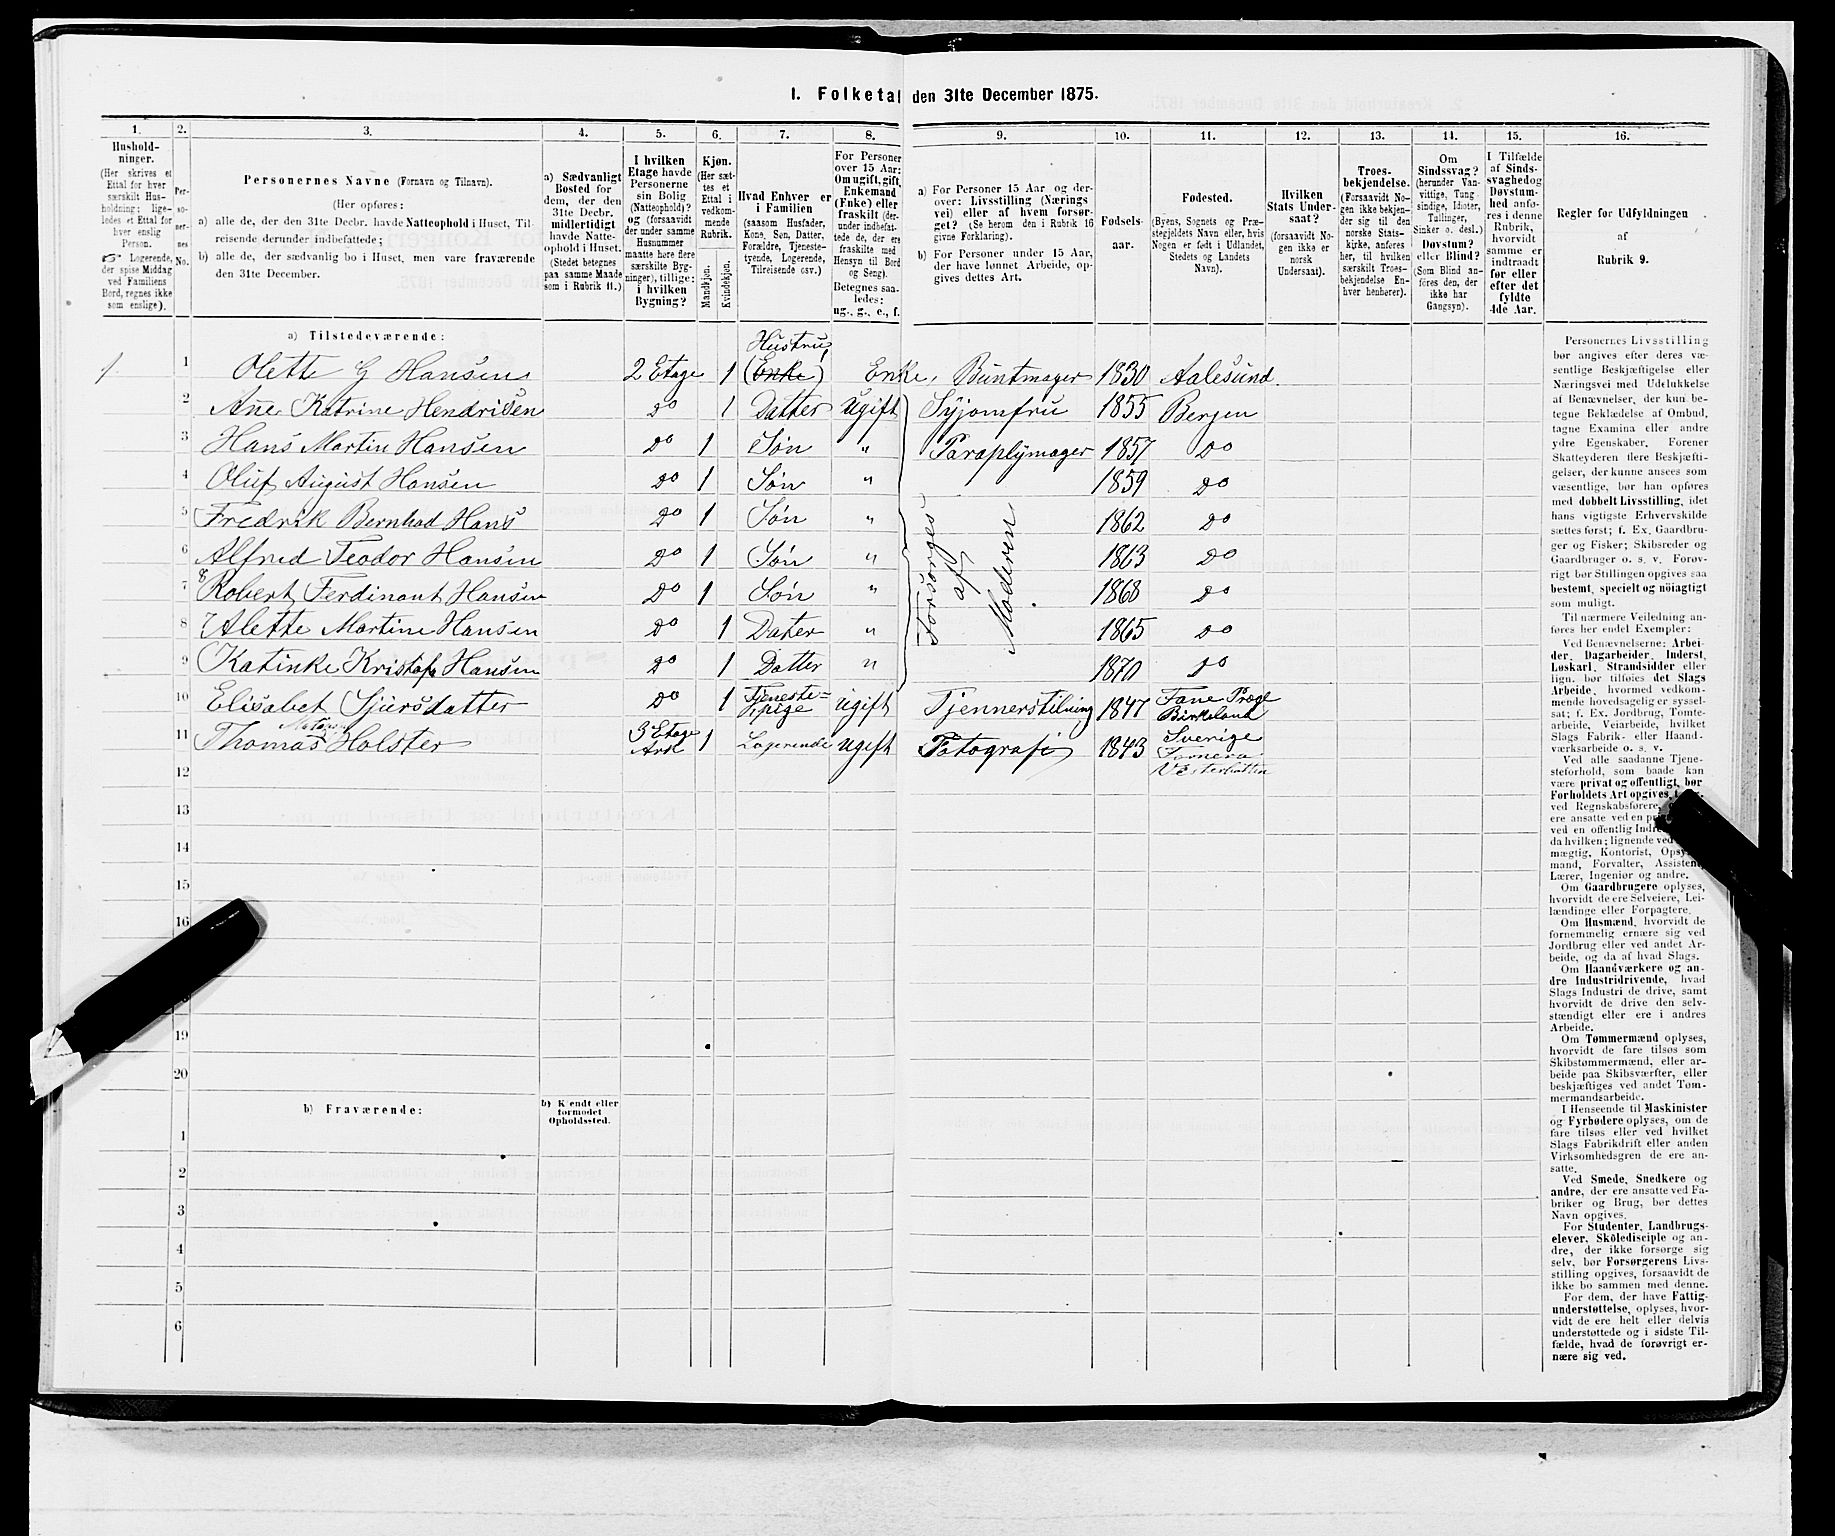 1. Folketal den 31te December 1875.
1. 2. 3. 4. 5. 6. 7. 8. 9. 10. 11. 12. 13. 14. 15. 16.
Hushold-
ninger.
(Her skrives et
Ettal for hver
særskilt Hus-
holdning; lige-
ledes et Ettal for
hver enslig
Person.
☞ Logerende,
der spise Middag
ved Familiens
Bord, regnes ikke
som enslige).
Per-
so-
ner-
nes
No.
Personernes Navne (Fornavn og Tilnavn).
(Her opføres:
a) alle de, der den 31te Decbr. havde Natteophold i Huset, Til-
reisende derunder indbefattede;
b) alle de, der sædvanlig bo i Huset, men vare fraværende
den 31te December.
a) Sædvanligt
Bosted for
dem, der den
31te Decbr.
midlertidigt
havde Natte-
ophold i Huset.
(Stedet betegnes
paa samme Maade
som i Rubrik 11.)
I hvilken
Etage havde
Personerne
sin Bolig
(Natteophold)?
og (forsaavidt
der under samme
Husnummer
maatte høre flere
særskilte Byg-
ninger), tillige:
i hvilken
Bygning?
Kjøn.
(Her sæt-
tes et
Ettal i
vedkom-
mende
Rubrik.
Mandkjøn.
Kvindekjøn.
Hvad Enhver er
i Familien
(saasom Husfader,
Kone, Søn, Datter,
Forældre, Tjeneste-
tyende, Logerende,
Tilreisende osv.)
For Personer
over 15 Aar:
Om ugift, gift,
Enkemand
(Enke) eller
fraskilt (der-
under indbefat-
tede de, der ere
fraskilte med
Hensyn til Bord
og Seng).
Betegnes saa-
ledes:
ug., g., e., f.
a) For Personer 15 Aar og der-
over: Livsstilling (Nærings
vei) eller af hvem forsør-
get? (Se herom den i Rubrik 16
givne Forklaring).
b) For Personer under 15 Aar,
der have lønnet Arbeide, op-
gives dettes Art.
Fødsels-
aar.
Fødested.
(Byens, Sognets og Præ-
stegjeldets Navn eller, hvis
Nogen er født i Udlandet,
Stedets og Landets
Navn).
Hvilken
Stats Under-
saat?
(forsaavidt No-
gen ikke er
norsk
Undersaat).
Troes-
bekjendelse.
(Forsaavidt No-
gen ikke bekjen-
der sig til den
norske Stats-
kirke, anføres
her, til hvilken
særskilt Troes-
bekjendelse En-
hver henhører).
Om
Sindssvag?
(herunder Van-
vittige, Tung-
sindige, Idioter,
Tullinger,
Sinker o. desl.)
Døvstum?
eller Blind?
(Som Blind an-
føres den, der
ikke har
Gangsyn).
I Tilfælde
af Sinds-
svaghed og
Døvstum-
hed anfø-
res i denne
Rubrik,
hvorvidt
samme er
indtraadt
før eller
efter det
fyldte
4de Aar.
Regler for Udfyldningen
af
Rubrik 9.
a) Tilstedeværende:
1 1 Olette G Hansen 2 Etage 1 Hustru (Enke) Enke, Buntmager 1830 Aalesund
2 Ane Katrine Hendrisen Do 1 Datter Ugift Syjomfru 1855 Bergen
3 Hans Martin Hansen Do 1 Søn " Paraplymager 1857 Do
4 Oluf August Hansen Do 1 Søn " 1859 Do
5 Fredrik Bernhad Hans Do 1 Søn " 1862 Do
6 Alfred Teodor Hansen Do 1 Søn " 1863 Do
7 8 Robert Ferdinant Hansen Do 1 Søn " 1868 Do
8 7 Alette Martine Hansen Do 1 Dater " 1865 Do
9 Katinke Kristofa Hansen Do 1 Datter " 1870 Do
Forsørges
af
Moderen
10 Elisabet Sjursdatter Do 1 Tjeneste-
pige ugift Tjennerstilning 1847 Fane Præg
Birkeland
11 Thomas Holster 3 Etage
Ark 1 Logerende ugift Fotografi 1843 Sverige
Vesterbotten
12
13
14
15
16
19
20
b) Fraværende:
b) Kjendt eller
formodet
Opholdssted.
1
2
3
4
5
6
Personernes Livsstilling
bør angives efter deres væ-
sentlige Beskjæftigelse eller
Næringsvei med Udelukkelse
af Benævnelser, der kun be-
tegne Beklædelse af Ombud,
tagne Examina eller andre
ydre Egenskaber. Forener
Skatteyderen flere Beskjæfti-
gelser, der kunne ansees som
væsentlige, bør han opføres
med dobbelt Livsstilling, idet
hans vigtigste Erhvervskilde
sættes først; f. Ex. Gaardbru-
ger og Fisker; Skibsreder og
Gaardbruger o. s. v. Forøv-
rigt bør Stillingen opgives saa
bestemt, specielt og nöiagtigt
som muligt.
Til nærmere Veiledning an-
føres her endel Exempler:
Ved Benævnelserne: Arbei-
der, Dagarbeider, Inderst,
Løskarl, Strandsidder eller
lign. bør tilføies det Slags
Arbeide, hvormed vedkom-
mende hovedsagelig er syssel-
sat; f. Ex. Jordbrug, Tomte-
arbeide, Veiarbeide, hvilket
Slags Fabrik- eller Haand-
værksarbeide o. s. v.
Ved alle saadanne Tjene-
steforhold, som baade kan
være privat og offentligt, bør
Forholdets Art opgives,
ved Regnskabsførere,
ere ansatte ved en
ved en offentlig
da hvilken; lignende ved
mægtig, Kontorist,
mand, Forvalter,
Lærer, Ingeniør og andre.
Om Gaardbrugere oplyses,
hvorvidt de ere Selveiere, Lei-
lændinge eller Forpagtere.
Om Husmænd, hvorvidt de
fornemmelig ernære sig ved
Jordbrug eller ved andet Ar-
beide, og da af hvad Slags.
Om Haandværkere og an-
dre Industridrivende, hvad
Slags Industri de drive, samt
hvorvidt de drive den selv-
stændigt eller ere i andres
Arbeide.
Om Tømmermænd oplyses,
hvorvidt de fare tilsøs som
Skibstømmermænd, eller ar-
beide paa Skibsværfter, eller
beskjæftiges ved andet Tøm-
mermandsarbeide.
I Henseende til Maskinister
og Fyrbødere oplyses, om de
fare tilsøs eller ved hvilket
Slags Fabrikdrift eller anden
Virksomhedsgren de ere an-
satte.
Ved Smede, Snedkere og
andre, der ere ansatte ved Fa-
briker og Brug, bør dettes
Navn opgives.
For Studenter, Landbrugs-
elever, Skoledisciple og an-
dre, der ikke forsørge sig
selv, bør Forsørgerens Livs-
stilling opgives, forsaavidt de
ikke bo sammen med denne.
For dem, der have Fattig-
understøttelse, oplyses, hvor-
vidt de ere helt eller delvis
understøttede og i sidste Til-
fælde, hvad de forøvrigt er-
nære sig ved.